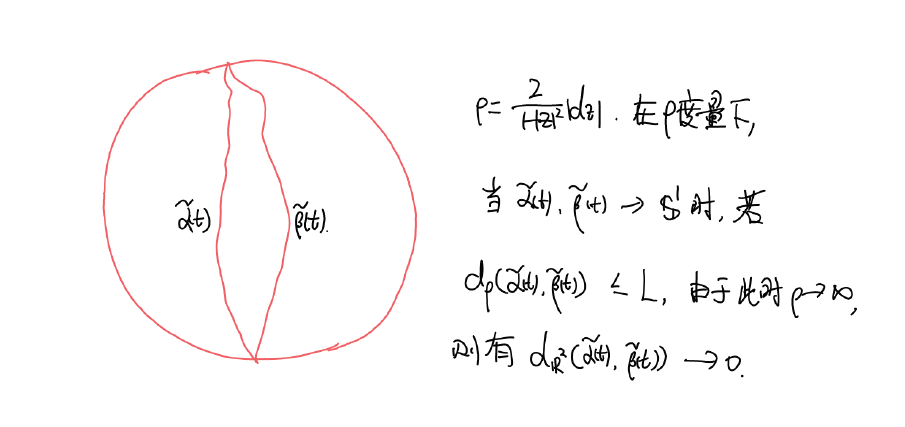 α̃(t)
β̃(t).
ρ= 2/(1-|z|²) |dz| . 在ρ度量下,
当 α̃(t), β̃(t) → S¹ 时, 若
dρ(α̃(t), β̃(t)) ≤ L, 由于此时 ρ→∞,
则有 d_ℝ²(α̃(t), β̃(t)) → 0.